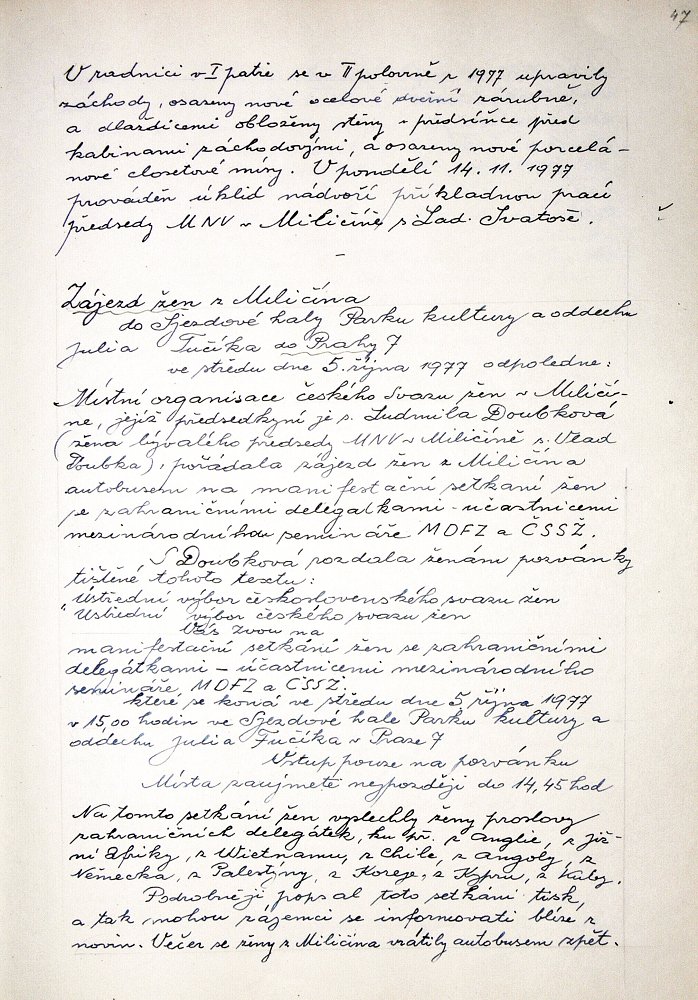 47
V radnici v I patře se v II polovině r 1977 upravily
záchody, osazeny nové ocelové dveřní zárubně,
a dlaždicemi obloženy stěny v předsíňce před
kabinami záchodovými, a osazeny nové porcelá-
nové closetové mísy. V pondělí 14. 11. 1977
prováděn úklid nádvoří příkladnou prací
předsedy MNV v Miličíně s. Lad. Svatoše.
-
Zájezd žen z Miličína
do Sjezdové haly Parku kultury a oddechu
Julia Fučíka do Prahy 7
ve středu dne 5. října 1977 odpoledne:
Místní organisace českého svazu žen v Miličí-
ně, jejíž předsedkyní je s. Ludmila Doubková
(žena bývalého předsedy MNV v Miličíně s. Vlad
Doubka), pořádala zájezd žen z Miličína
autobusem na manifestační setkání žen
se zahraničními delegátkami - účastnicemi
mezinárodního semináře MDFŽ a ČSSŽ.
S Doubková rozdala ženám pozvánky
tištěné tohoto textu:
"Ústřední výbor československého svazu žen
Ústřední výbor českého svazu žen
Vás zvou na
manifestační setkání žen se zahraničními
delegátkami - účastnicemi mezinárodního
semináře MDFZ a ČSSŽ.
které se koná ve středu dne 5. října 1977
v 15,00 hodin ve Sjezdové hale Parku kultury a
oddechu Julia Fučíka v Praze 7
Vstup pouze na pozvánku
Místa zaujměte nejpozději do 14,45 hod
Na tomto setkání žen vyslechly ženy proslovy
zahraničních delegátek, ku př. z Anglie, z Již-
ní Afriky, z Wietnamu, z Chile, z Angoly, z
Německa, z Palestýny, z Koreje, z Kypru, z Kuby.
Podrobněji popsal toto setkání tisk,
a tak mohou zájemci se informovati blíže z
novin. Večer se ženy z Miličína vrátily autobusem zpět.